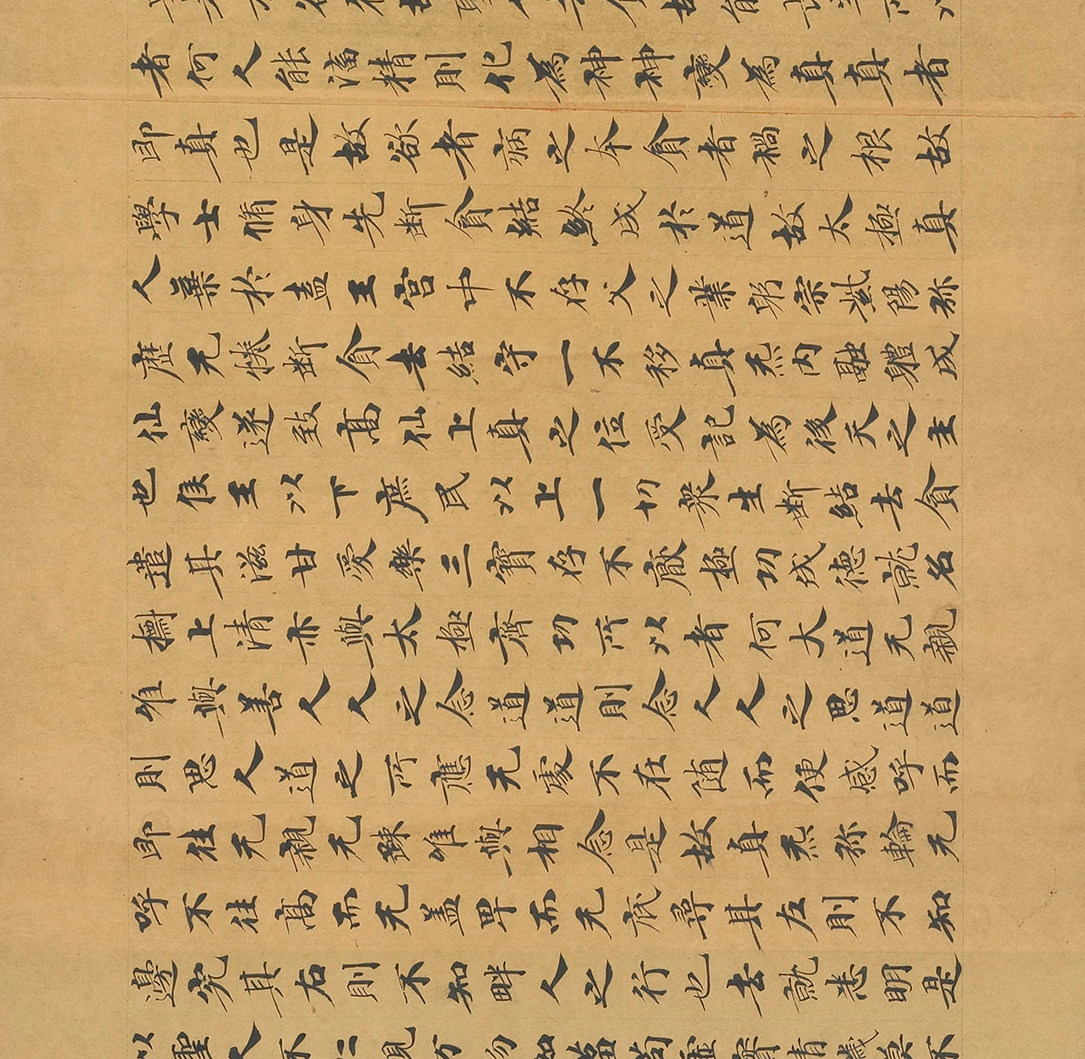 者何人能濇精則化為神神變為真真者
即真也是故欲者病之本貪者禍之根故
學士脩身先斷貪結終成於道故太極真
人棄於盍王宮中不存父之業躬宗紫陽弥
歷无惓斷貪去結守一不移真炁内融軆成
仙變遂致高仙上真之位受記為後天之主
也侯王以下庶民以上一切衆生斷結去貪
遣其滋甘愛樂三寶存不厭極功成德就名
摽上清亦與太極齊功所以者何大道无親
唯與善人人之念道道則念人人之思道道
則思人道之所應无處不在随而使感呼而
即往无親无踈唯與相念是故真炁弥輪无
呼不往高而无盖卑而无底尋其左則不知
邊究其右則不知畔人之行也去就悉明是
以聖人不